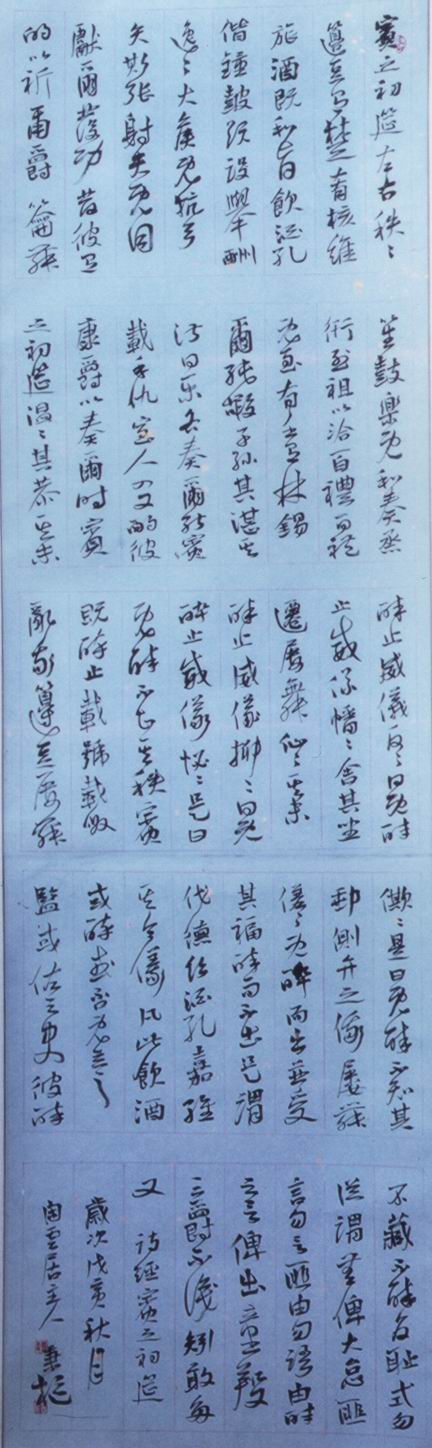 賓之初筵左右秩〻
籩豆有楚肴核維
旅酒既和旨飲酒孔
偕鍾鼓既設舉酬
逸〻大侯既抗弓
矢斯張射夫既同
獻爾發功發彼有
的以祈爾爵籥舞
笙鼓樂既和奏烝
衎烈祖以洽百禮百禮
既至有壬有林錫
爾純嘏子孫其湛其
湛曰樂各奏爾能賓
載手仇室人入又酌彼
康爵以奏爾時賓
之初筵溫〻其恭其未
醉止威儀反〻曰既醉
止威儀幡〻舍其坐
遷屢舞仙〻其未
醉止威儀抑〻曰既
醉止威儀怭〻是曰
既醉不知其秩賓
既醉止載號載呶
亂我籩豆屢舞
僛〻是曰既醉不知其
郵側弁之俄屢舞
傞〻既醉而出並受
其福醉而不出是謂
伐德飲酒孔嘉維
其令儀凡此飲酒
或醉或否既立之
監或佐之史彼醉
不臧不醉反恥式勿
從謂無俾大怠匪
言勿言匪由勿語由醉
之言俾出童羖
三爵不識矧敢多
又 詩經賓之初筵
歲次戊寅秋月
雲居主人 秉